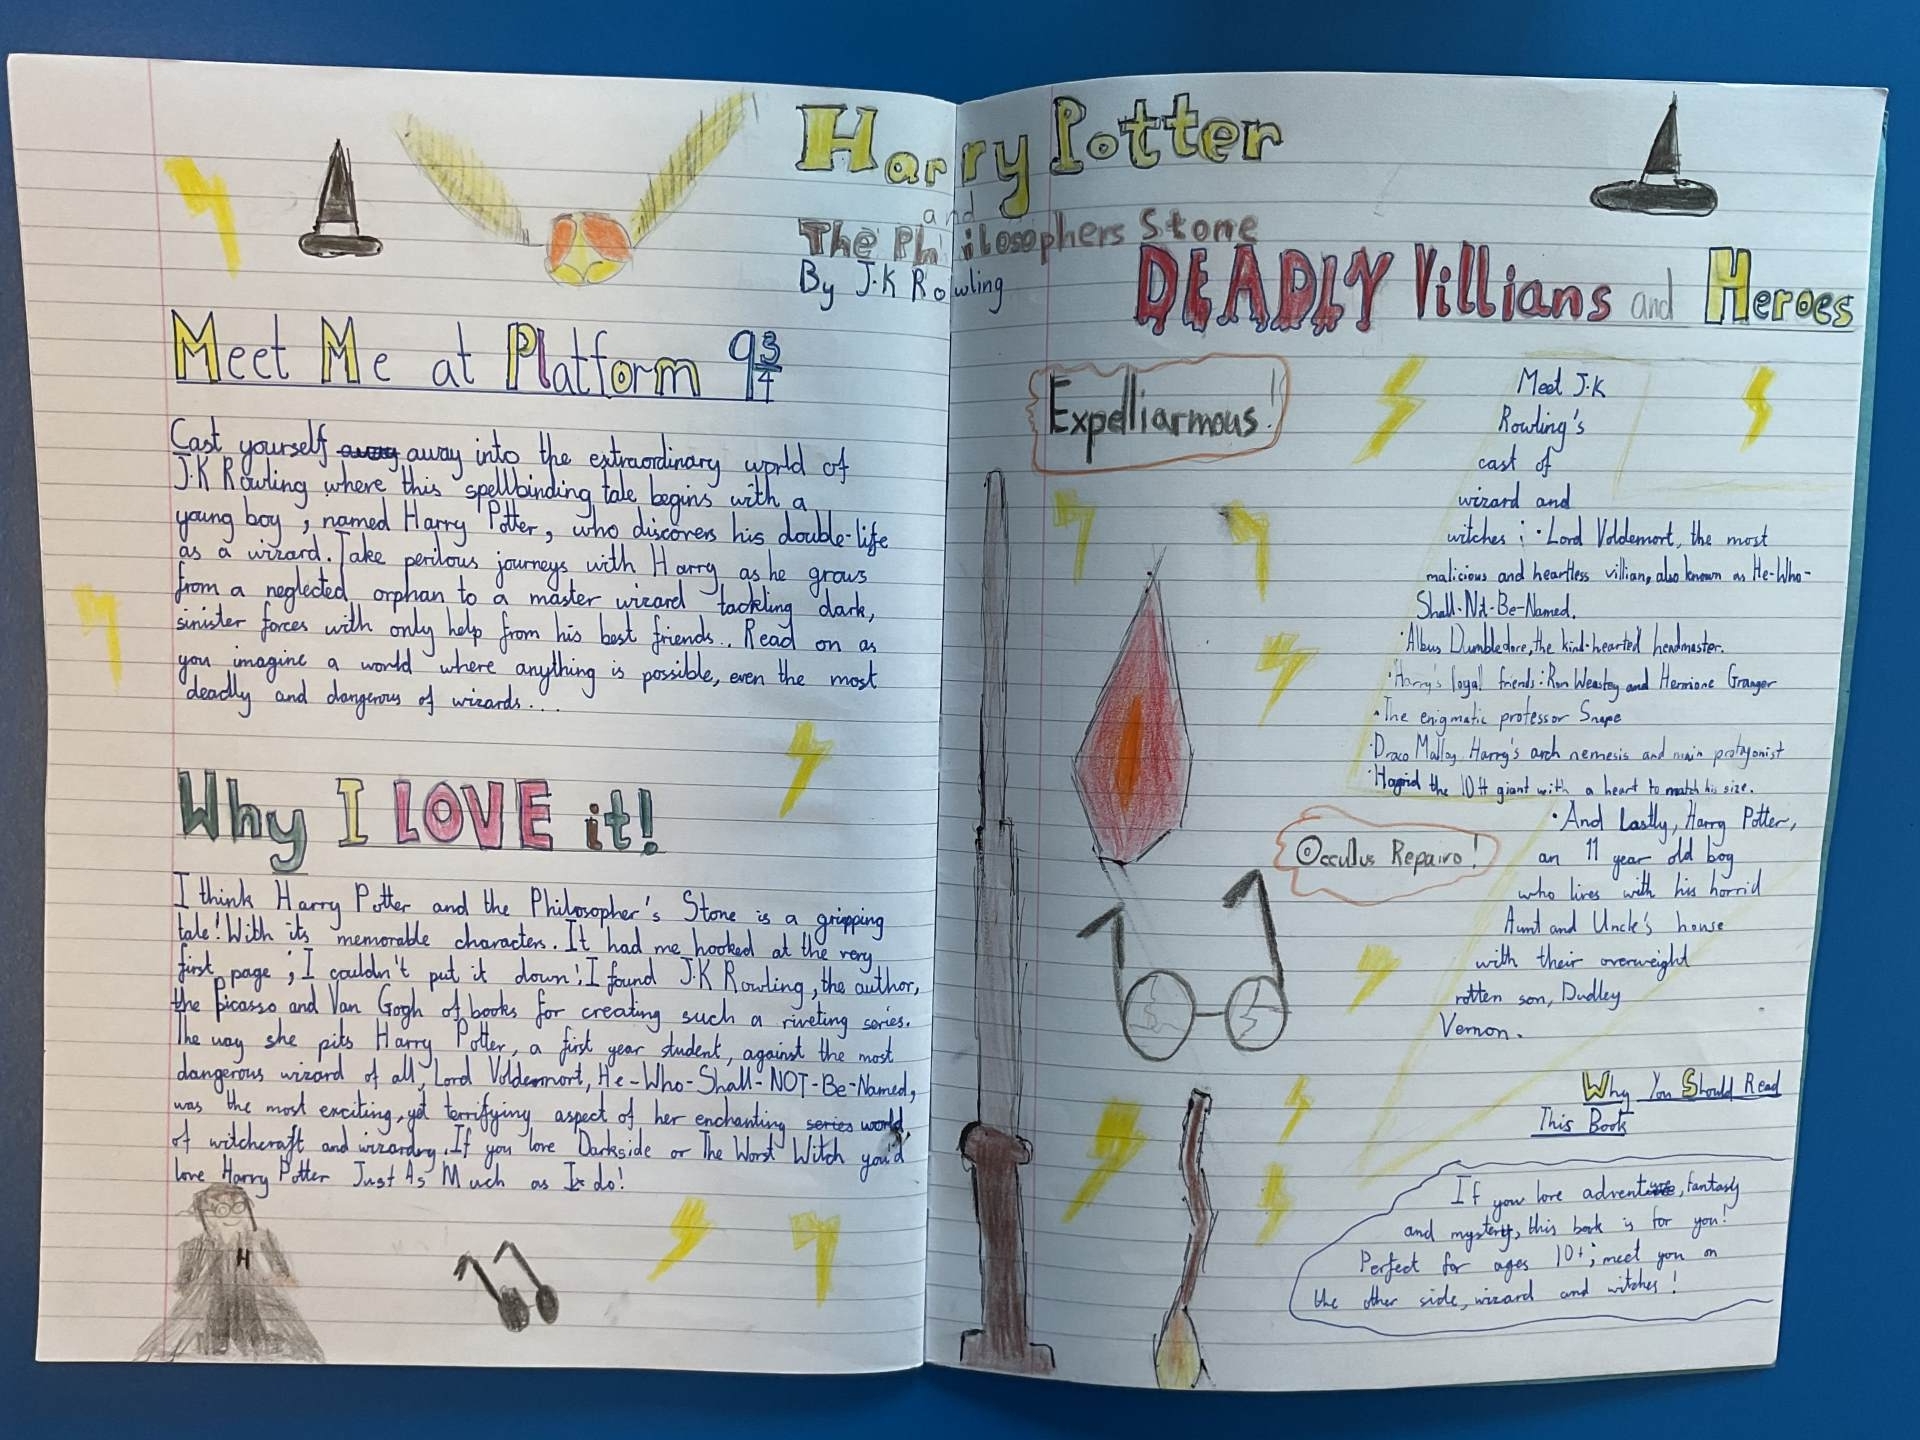 Harry Potter
and
The Philosophers Stone
By J.K Rowling
Meet Me at Platform 9 3/4
Cast yourself away into the extraordinary world of
J.K Rowling where this spellbinding tale begins with a
young boy, named Harry Potter, who discovers his double-life
as a wizard. Take perilous journeys with Harry as he grows
from a neglected orphan to a master wizard tackling dark,
sinister forces with only help from his best friends... Read on as
you imagine a world where anything is possible, even the most
deadly and dangerous of wizards...
Why I LOVE it!
I think Harry Potter and the Philosopher's Stone is a gripping
tale! With its memorable characters. It had me hooked at the very
first page; I couldn't put it down! I found J.K Rowling, the author,
the Picasso and Van Gogh of books for creating such a riveting series.
The way she pits Harry Potter, a first year student, against the most
dangerous wizard of all, Lord Voldermort, He-Who-Shall-NOT-Be-Named,
was the most exciting, yet terrifying aspect of her enchanting series world
of witchcraft and wizardry. If you love Darkside or The Worst Witch you'd
love Harry Potter Just As Much as I do!
H
DEADLY Villians and Heroes
Expelliarmous!
Meet J.K
Rowling's
cast of
wizard and
witches; • Lord Voldemort, the most
malicious and heartless villian, also known as He-Who-
Shall-Not-Be-Named.
• Albus Dumbledore, the kind-hearted headmaster.
• Harry's loyal friends: Ron Weasley and Hermione Granger
• The enigmatic professor Snape
• Draco Malfoy Harry's arch nemesis and main protagonist
• Hagrid the 10ft giant with a heart to match his size.
• And Lastly, Harry Potter,
an 11 year old boy
who lives with his horrid
Aunt and Uncle's house
with their overweight
rotten son, Dudley
Vernon.
Occulus Repairo!
Why You Should Read
This Book
If you love adventure, fantasy
and mystery, this book is for you!
Perfect for ages 10+; meet you on
the other side, wizard and witches!